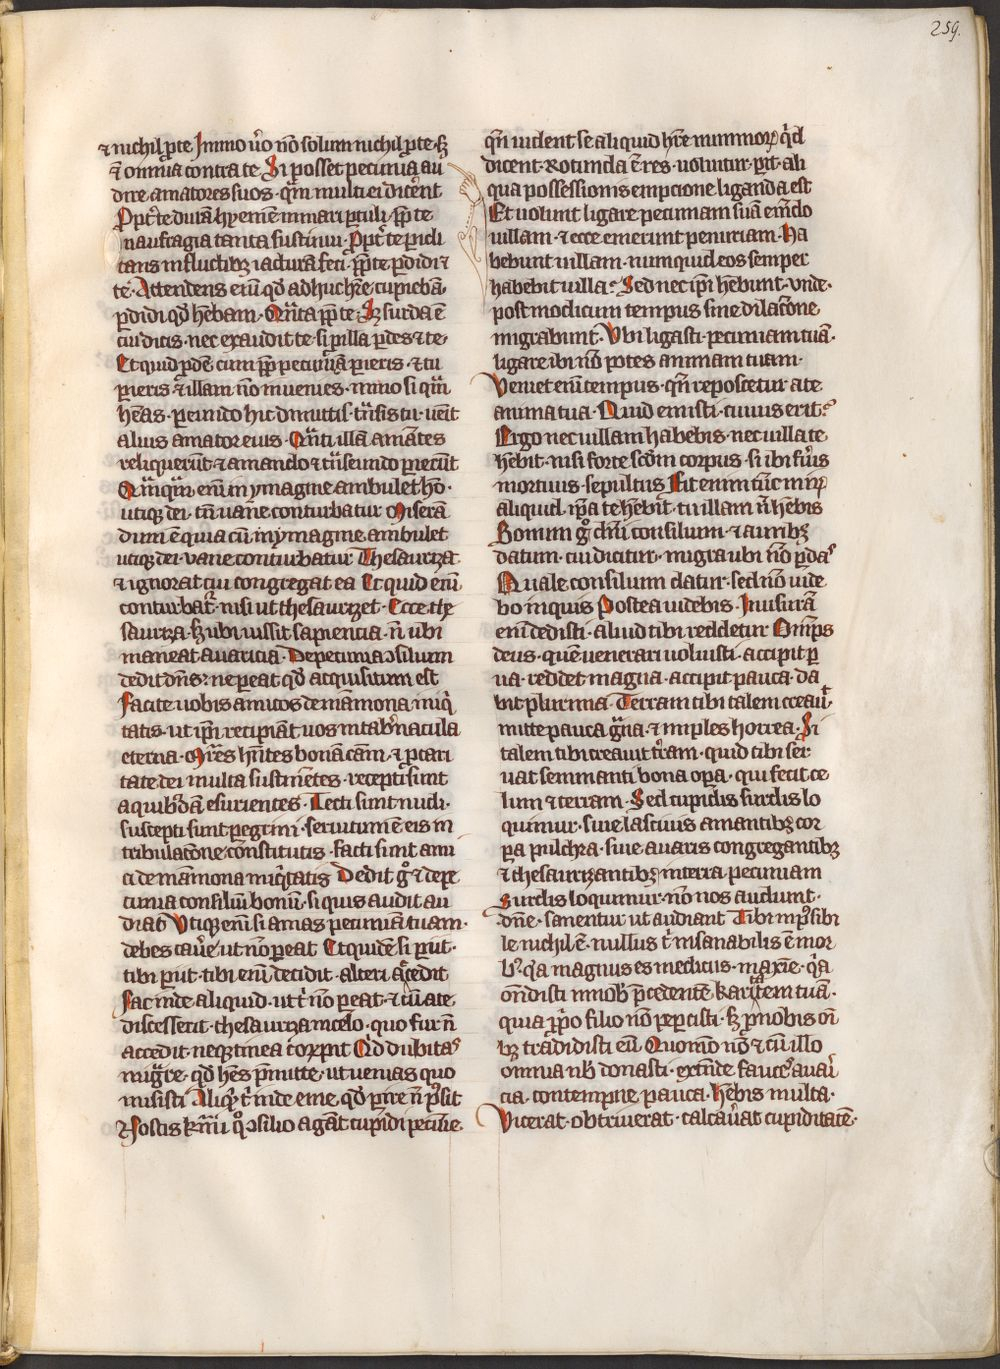 259.
⁊ nichil p̱te Immo ůo nō solum nichil p̱te· sꝫ
⁊ omnia contra te Si posset pecunia au
dire amatores suos· qm̄ multi ei dicerēt
Ppt̄ te durā hyemē in mari ptuli· ꝓp̱ te
naufragia tanta sustinui· Ppt̄ te picli
tans in fluctibꝫ iacturā feci· ꝓp̱ te pdidi ⁊
te· Attendens eni qd̄ adhuc hr̄e cupiebā·
pdidi qd̄ hēbam· Qn̄ta ꝓp̱ te· Sꝫ surda ē
cui dicis· nec exaudit te· si p illa pdes ⁊ te·
Et quid pdē cum ꝓp̱ pecuniā pieris· ⁊ tu
pieris ⁊ illam nō inuenies· immo si qm̄
hēas· peundo hic dimittis· tn̄sis tu· uēit
alius amator eius· Qn̄ti illā amātes
reliquerūt· ⁊ amando ⁊ tn̄seundo pierūt
Qm̄qm̄ eni in ymagine ambulet hō·
utiqꝫ dei· tn̄ uane conturbatur Miserā
dum ē quia cū in ymagine ambulet
utiqꝫ dei· uane conturbatur Thesauriza
⁊ ignorat cui congregat ea Et quid eni
conturbat̄· nisi ut thesaurizet· Ecce the
sauriza· sꝫ ubi iussit sapiencia· n̄ ubi
maneat auaricia· De pecunia ɔsilium
dedit dn̄s· ne peat qd̄ acquisitum est
Facite uobis amicos de māmona iniq̇
tatis· ut ip̄i recipiāt uos in tab̄nacula
eterna· Mr̄es hn̄tes bonā cām· ⁊ p cari
tate dei multa sustinētes· recepti sunt
a quibꝰdā esurientes· Tecti sunt nudi·
suscepti sunt pegrini· seruitum ē eis in
tribulacōne constitutis· facti sunt ami
ci de māmona iniq̇tatis Dedit gͦ ⁊ de pe
cunia consiliū bonū· si quis audit au
diat· Vtiqꝫ eni si amas pecuniā tuam·
debes caue̅ ut nō peat Et quidē si pit·
tibi pit· tibi eni decidit· alteri accedit
Fac inde aliquid· ut t̄ nō peat· ⁊ cū a te
discesserit· thesauriza in celo· quo fur n̄
accedit· neqꝫ tinea corrūpit Qd̄ dubitas
migre· qd̄ hēs p̄mitte· ut uenias quo
misisti Aliq̇ t̄ inde eme· qd̄ pire n̄ p̱sit
Noscis kr̄mi qͦ ɔsilio agāt cupidi pecunie
qn̄ uident se aliquid hr̄e nummoꝝ q̇d
dicent· Rotunda ē res· uoluitur· pit· ali
qua possessionis empcione liganda est
Et uolunt ligare pecuniam suā emēdo
uillam· ⁊ ecce emerunt peniriam· Ha
bebunt uillam· numquid eos semper
habebit uilla? Sed nec ip̄i hēbunt· unde·
post modicum tempus sine dilacōne
migrabunt· Vbi ligasti· pecuniam tuā·
ligare ibi nō potes animam tuam·
Veniet eni tempus· qn̄ reposcetur a te
anima tua· Quid emisti· cuius erit?
Ergo nec uillam habebis· nec uilla te
hēbit· nisi forte scdm corpus· si ibi fūis
mortuus· sepultus Fit enim tūc mirꝝ
aliquid· ip̄a te hēbit· tu illam n̄ hēbis
Bonum gͦ dn̄i consilium· ⁊ auribꝫ
datum· cui dicitur· migra ubi nō pdas
Quale consilium datur· sed nō uide
bo inquis Postea uidebis· In usurā
eni dedisti· aliud tibi reddetur Omīps
deus· quē uenerari uoluisti· accipit p
ua· reddet magna· accipit pauca· da
bit plurima· Terram tibi talem creauit
mitte pauca gn̄a· ⁊ imples horrea· Si
talem tibi creauit tr̄am· quid tibi ser
uat seminanti bona opa· qui fecit ce
lum ⁊ terram· Sed cupidis surdis lo
quimur· siue lasciuis amantibꝫ cor
pa pulchra· siue auaris congregantibꝫ
⁊ thesaurizantibꝫ in terra pecuniam
Surdis loquimur· nō nos audiunt·
dn̄e· sanentur ut audiant Tibi imp̱sibi
le nichil ē· nullus t̄ insanabilis ē mor
bꝰ· q̇a magnus es medicus· maxīe· q̇a
on̄disti in nob̄ p̄cedentē karitatem tuā·
quia ꝓpo filio nō pepcisti· sꝫ p nobis oī
bꝫ tradidisti eū Quomō nō ⁊ cū illo
omnia nb̄ donasti· extīde fauces auari
cia· contempne pauca· hēbis multa·
Vicerat· obtriuerat· calcau̅at cupiditatē·